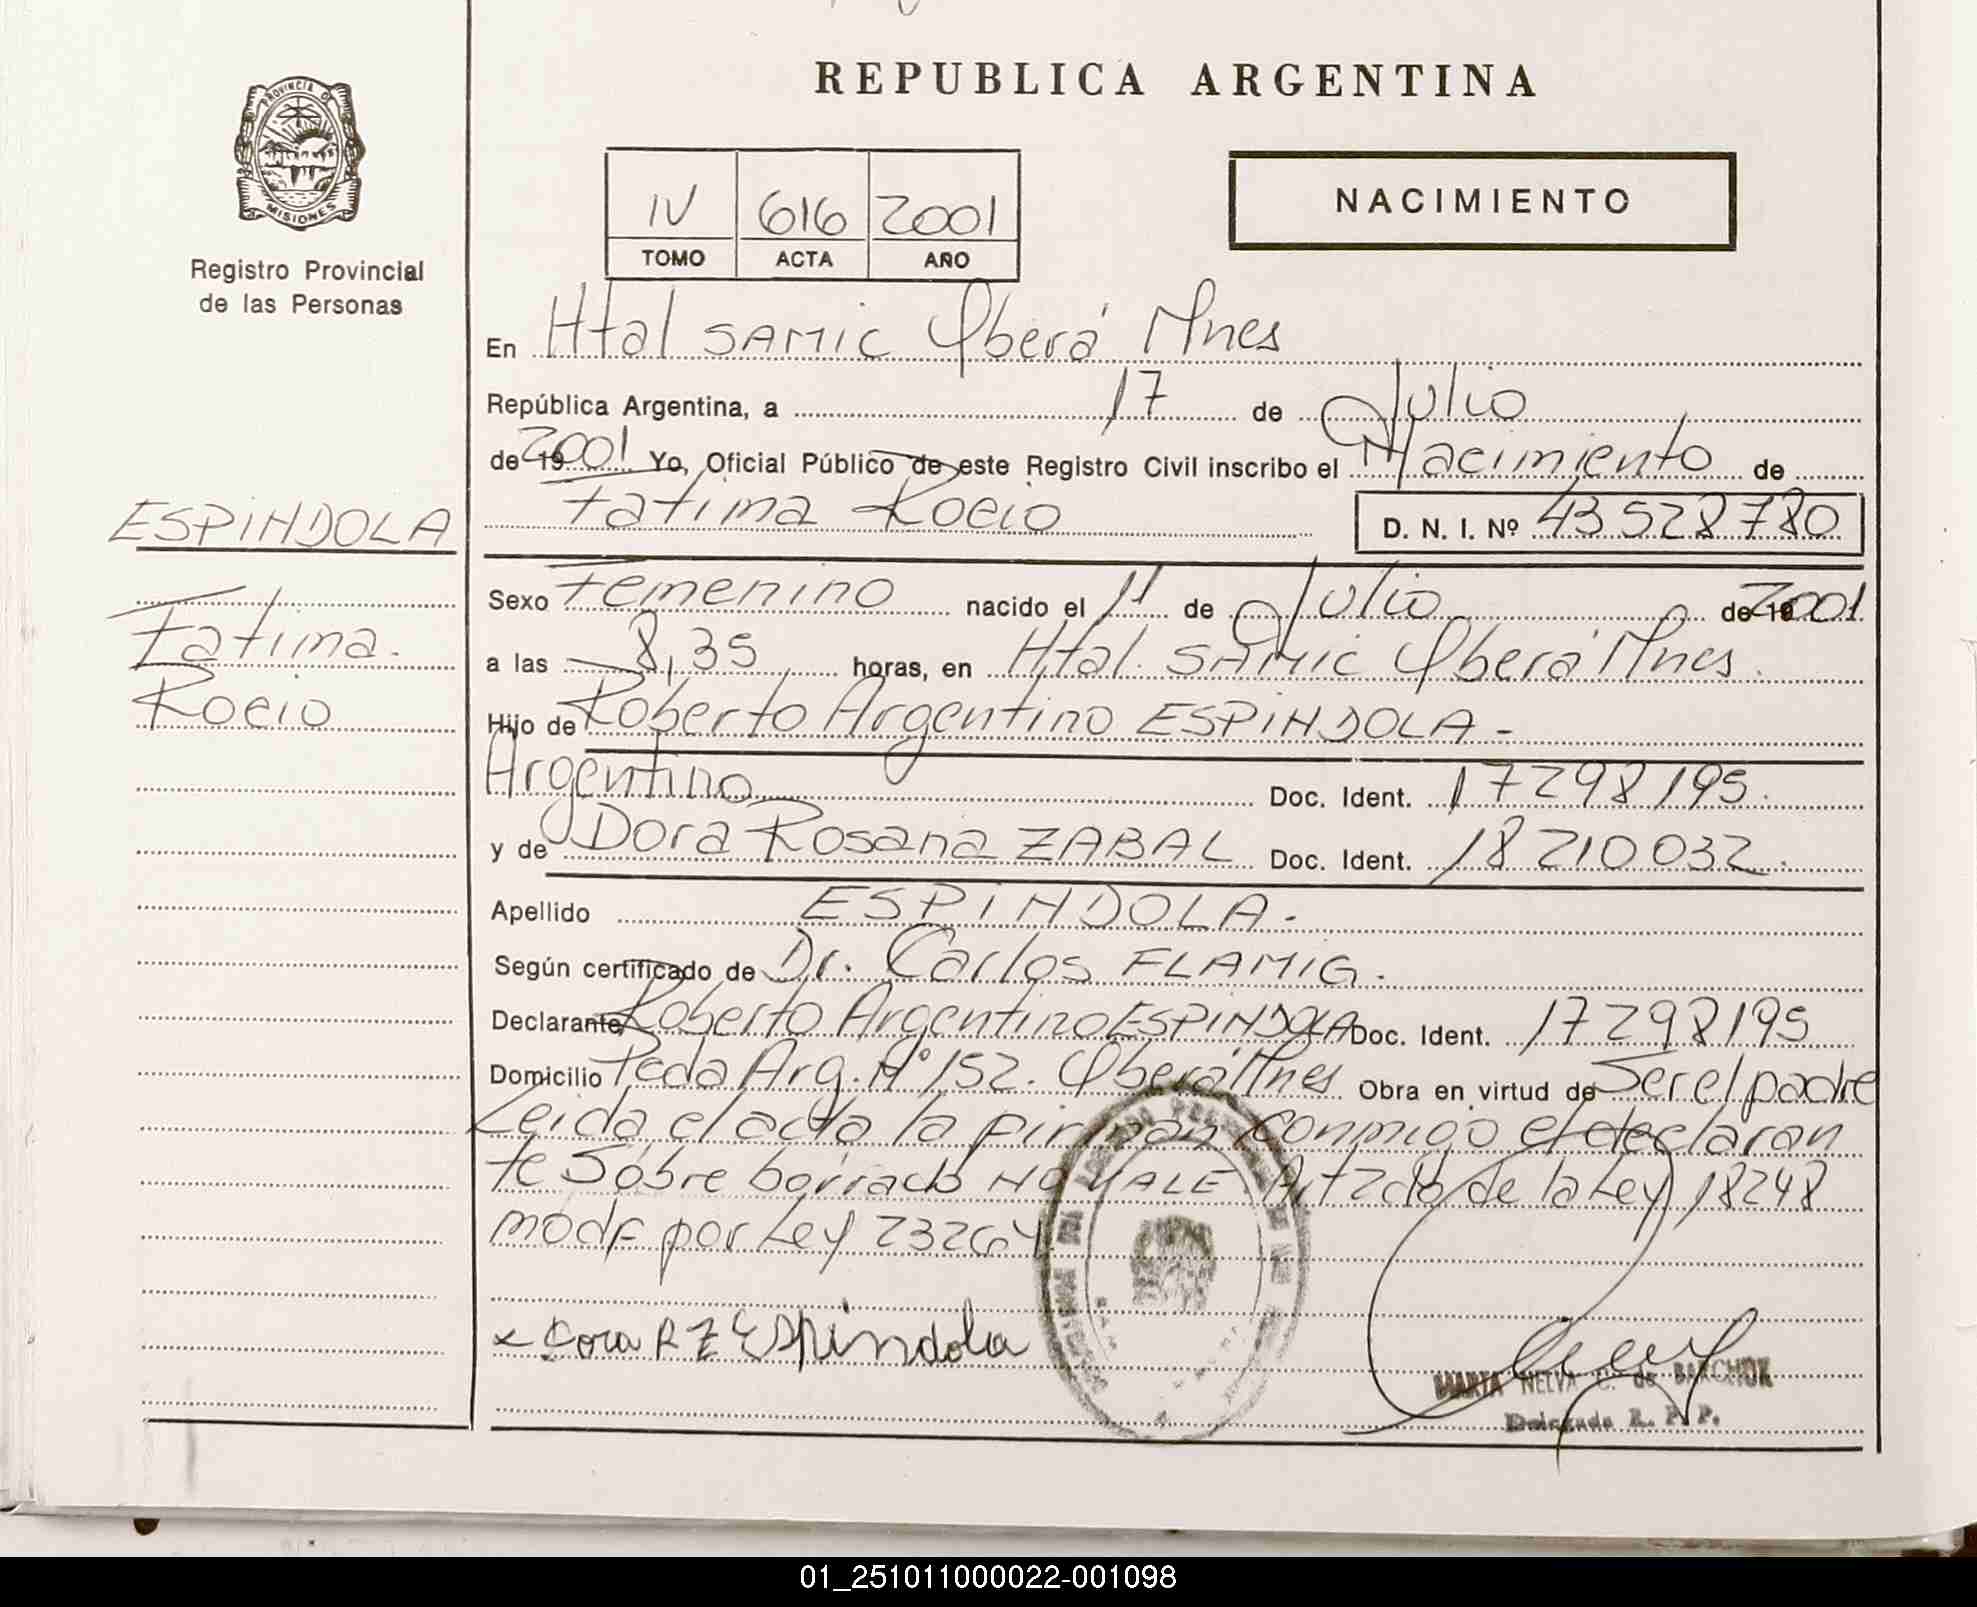 REPUBLICA ARGENTINA
PROVINCIA D
MISIONES
Registro Provincial
de las Personas
IV 616 2001
TOMO ACTA AÑO
NACIMIENTO
En Htal SAMIC Oberá Mnes
República Argentina, a 17 de Julio
de 19 2001 Yo, Oficial Público de este Registro Civil inscribo el Nacimiento de
Fatima Rocio D. N. I. Nº 43528780
ESPINDOLA
Fatima.
Rocio
Sexo Femenino nacido el 11 de Julio de 19 2001
a las 8,35 horas, en Htal. SAMIC Oberá Mnes.
Hijo de Roberto Argentino ESPINDOLA -
Argentino Doc. Ident. 17298195.
y de Dora Rosana ZABAL Doc. Ident. 18210032.
Apellido ESPINDOLA.
Según certificado de Dr. Carlos FLAMIG.
Declarante Roberto Argentino ESPINDOLA Doc. Ident. 17298195
Domicilio Pcda Arg. Nº 152. Oberá Mnes Obra en virtud de Ser el padre
Leida el acta la firman conmigo el declaran
te Sobre borrado NO VALE Art 2do de la Ley 18248
modf por Ley 23264
x Dora R Z Espindola
MARTA NELVA C. de BARCHUK
Delegada R. P. P.
01_251011000022-001098